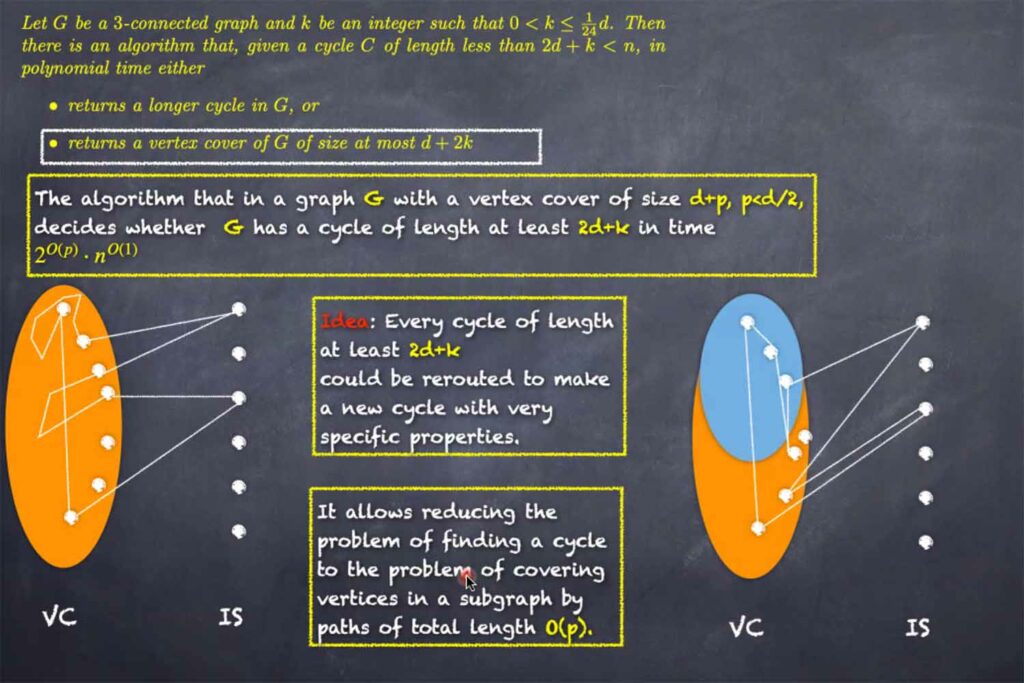 Let G be a 3-connected graph and k be an integer such that 0 < k ≤ 1/24 d. Then
there is an algorithm that, given a cycle C of length less than 2d + k < n, in
polynomial time either
• returns a longer cycle in G, or
• returns a vertex cover of G of size at most d + 2k
The algorithm that in a graph G with a vertex cover of size d+p, p<d/2,
decides whether G has a cycle of length at least 2d+k in time
2^{O(p)} · n^{O(1)}
Idea: Every cycle of length
at least 2d+k
could be rerouted to make
a new cycle with very
specific properties.
It allows reducing the
problem of finding a cycle
to the problem of covering
vertices in a subgraph by
paths of total length O(p).
VC
IS
VC
IS